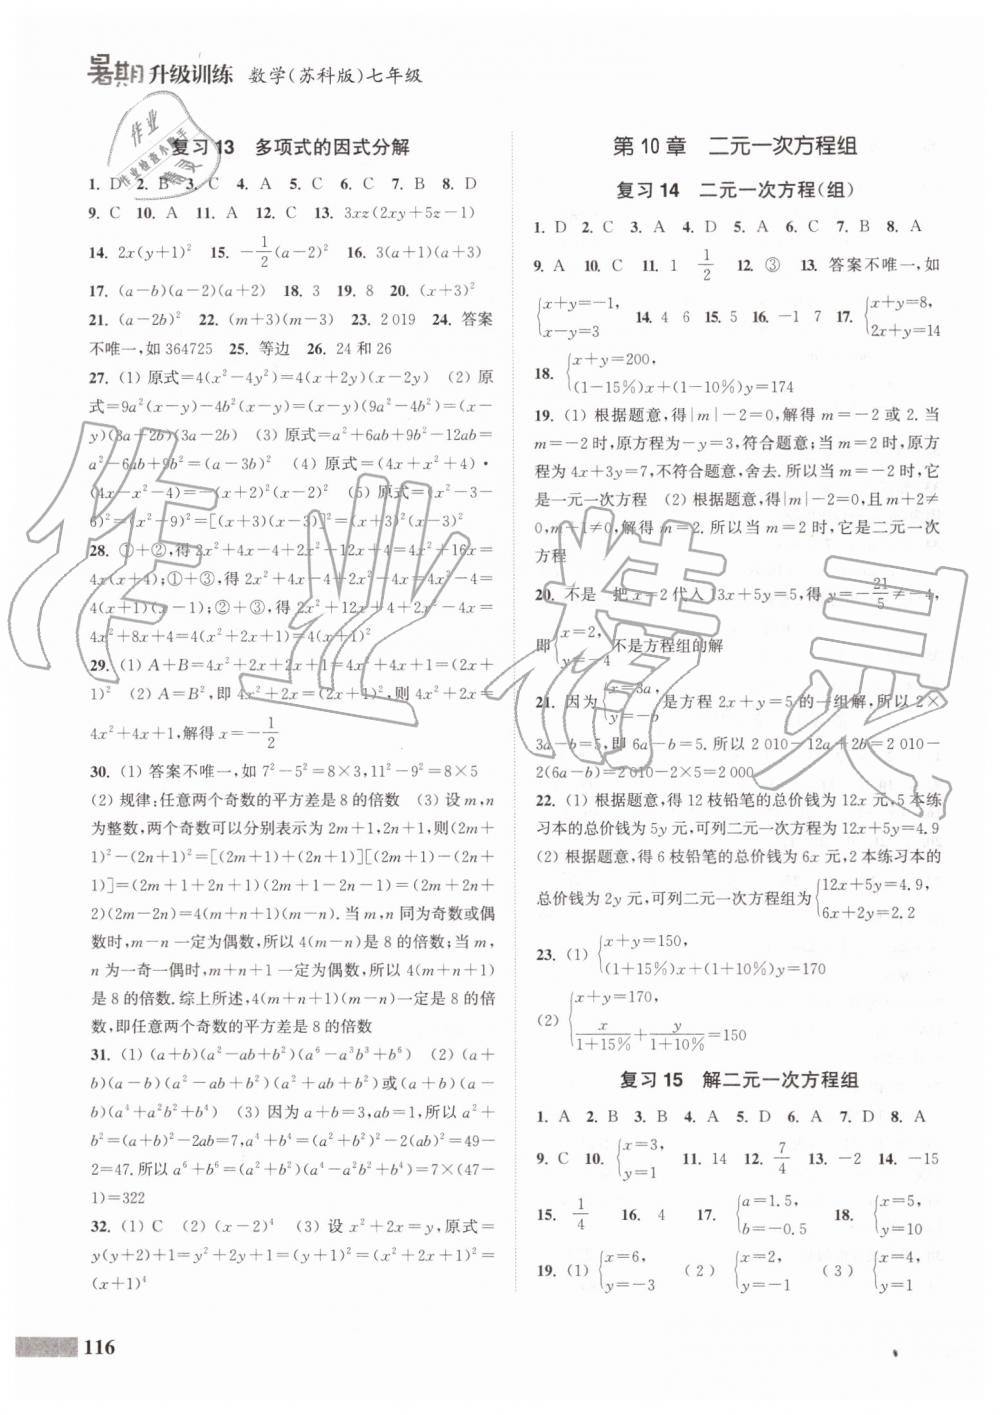 暑期升级训练 数学(苏科版)七年级
复习13 多项式的因式分解
1. D 2. B 3. C 4. A 5. C 6. D 7. B 8. D
9. C 10. A 11. A 12. C 13. 3xz(2xy+5z-1)
14. 2x(y+1)² 15. -1/2(a-2)² 16. 3(a+1)(a+3)
17. (a-b)(a-2)(a+2) 18. 3 19. 8 20. (x+3)²
21. (a-2b)² 22. (m+3)(m-3) 23. 2 019 24. 答案
不唯一,如 364725 25. 等边 26. 24 和 26
27. (1) 原式=4(x²-4y²)=4(x+2y)(x-2y) (2) 原
式=9a²(x-y)-4b²(x-y)=(x-y)(9a²-4b²)=(x-
y)(3a+2b)(3a-2b) (3) 原式=a²+6ab+9b²-12ab=
a²-6ab+9b²=(a-3b)² (4) 原式=(4x+x²+4)·
(4x-x²-4)=-(x+2)²(x-2)² (5) 原式=(x²-3-
6)²=(x²-9)²=[(x+3)(x-3)]²=(x+3)²(x-3)²
28. ①+②,得 2x²+4x-4+2x²+12x+4=4x²+16x=
4x(x+4);①+③,得 2x²+4x-4+2x²-4x=4x²-4=
4(x+1)(x-1);②+③,得 2x²+12x+4+2x²-4x=
4x²+8x+4=4(x²+2x+1)=4(x+1)²
29. (1) A+B=4x²+2x+2x+1=4x²+4x+1=(2x+
1)² (2) A=B²,即 4x²+2x=(2x+1)²,则 4x²+2x=
4x²+4x+1,解得 x=-1/2
30. (1) 答案不唯一,如 7²-5²=8×3,11²-9²=8×5
(2) 规律:任意两个奇数的平方差是 8 的倍数 (3) 设 m,n
为整数,两个奇数可以分别表示为 2m+1,2n+1,则(2m+
1)²-(2n+1)²=[(2m+1)+(2n+1)][(2m+1)-(2n+
1)]=(2m+1+2n+1)(2m+1-2n-1)=(2m+2n+
2)(2m-2n)=4(m+n+1)(m-n). 当 m,n 同为奇数或偶
数时,m-n 一定为偶数,所以 4(m-n)是 8 的倍数;当 m,
n 为一奇一偶时,m+n+1 一定为偶数,所以 4(m+n+1)
是 8 的倍数. 综上所述,4(m+n+1)(m-n)是 8 的倍
数,即任意两个奇数的平方差是 8 的倍数
31. (1) (a+b)(a²-ab+b²)(a⁶-a³b³+b⁶) (2) (a+
b)(a-b)(a²-ab+b²)(a²+ab+b²) (3) (a-
b)(a⁴+a²b²+b⁴) (3) 因为 a+b=3,ab=1,所以 a²+
b²=(a+b)²-2ab=7,a⁴+b⁴=(a²+b²)²-2(ab)²=49-
2=47. 所以 a⁶+b⁶=(a²+b²)(a⁴-a²b²+b⁴)=7×(47-
1)=322
32. (1) C (2) (x-2)⁴ (3) 设 x²+2x=y,原式=
y(y+2)+1=y²+2y+1=(y+1)²=(x²+2x+1)²=
(x+1)⁴
第10章 二元一次方程组
复习14 二元一次方程(组)
1. D 2. C 3. A 4. D 5. A 6. C 7. B 8. A
9. A 10. C 11. 1 1/2 12. ③ 13. 答案不唯一,如
{x+y=-1, x-y=3 14. 4 6 15. 5 16. -1 7 17. {x+y=8, 2x+y=14
18. {x+y=200, (1-15%)x+(1-10%)y=174
19. (1) 根据题意,得|m|-2=0,解得 m=-2 或 2. 当
m=-2 时,原方程为-y=3,符合题意;当 m=2 时,原方
程为 4x+3y=7,不符合题意,舍去. 所以当 m=-2 时,它
是一元一次方程 (2) 根据题意,得|m|-2=0,且 m+2≠
0,m-1≠0,解得 m=2. 所以当 m=2 时,它是二元一次
方程
20. 不是 把 x=2 代入 13x+5y=5,得 y=-21/5≠-4,
即{x=2, y=-4 不是方程组的解
21. 因为{x=3a, y=-b 是方程 2x+y=5 的一组解,所以 2×
3a-b=5,即 6a-b=5. 所以 2 010-12a+2b=2 010-
2(6a-b)=2 010-2×5=2 000
22. (1) 根据题意,得 12 枝铅笔的总价钱为 12x 元,5 本练
习本的总价钱为 5y 元,可列二元一次方程为 12x+5y=4.9
(2) 根据题意,得 6 枝铅笔的总价钱为 6x 元,2 本练习本的
总价钱为 2y 元,可列二元一次方程组为{12x+5y=4.9, 6x+2y=2.2
23. (1) {x+y=150, (1+15%)x+(1+10%)y=170
(2) {x+y=170, x/(1+15%)+y/(1+10%)=150
复习15 解二元一次方程组
1. A 2. B 3. B 4. A 5. D 6. A 7. D 8. A
9. C 10. {x=3, y=1 11. 14 12. 7/4 13. -2 14. -15
15. 1/4 16. 4 17. {a=1.5, b=-0.5 18. {x=5, y=10
19. (1) {x=6, y=-3 (2) {x=2, y=-1 (3) {x=4, y=1
116
作业精灵
作业检查小助手